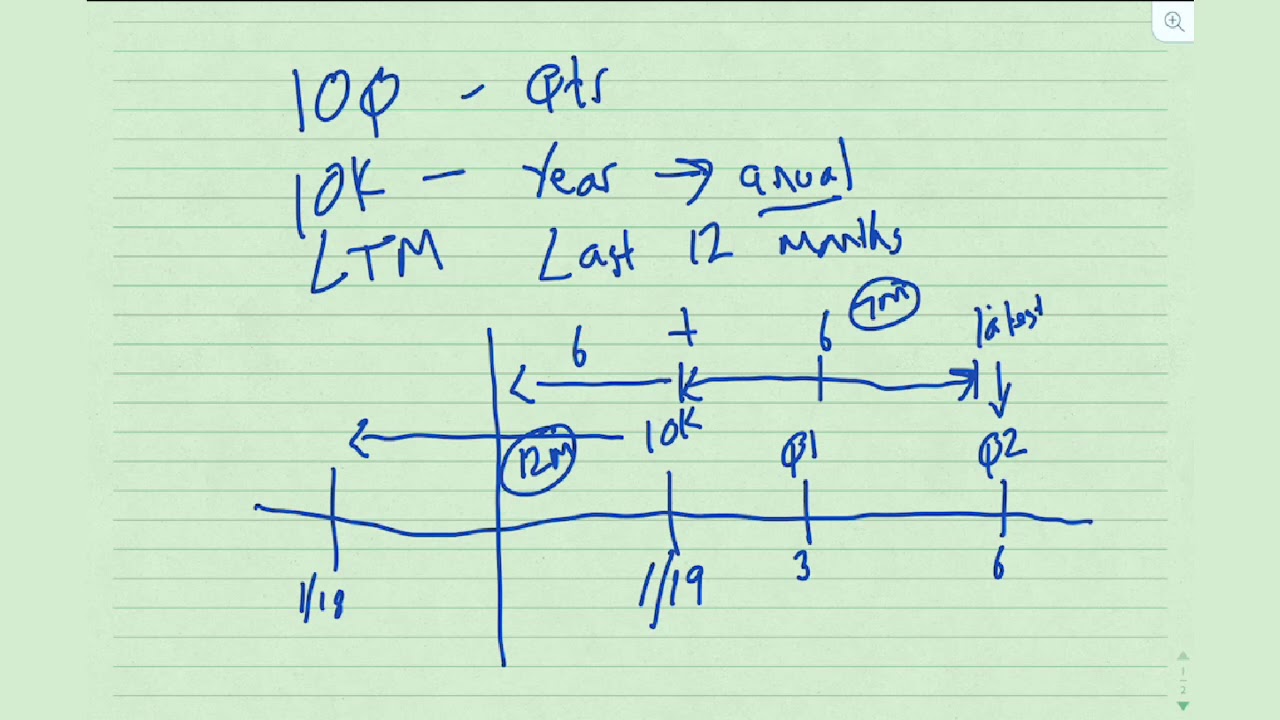 10Q - Qts
10K - Year → anual
LTM Last 12 months
6 + 6 latest
10K Q1 Q2
12M
1/18 1/19 3 6
1
2